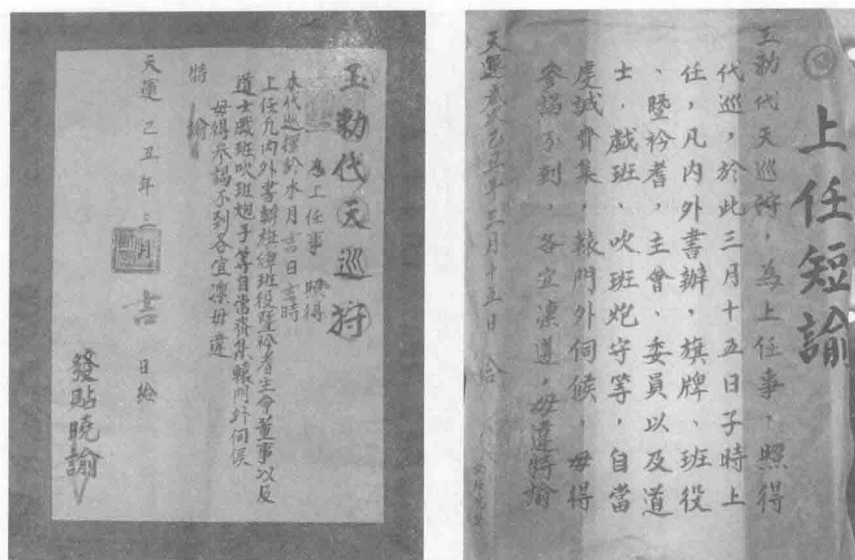 玉勅代天巡狩
為上任事照得
本代巡擇於本月吉日吉時
上任凡內外書辦旌牌班役暨衿耆主會董事以及
道士戲班吹班炮手等自當齊集轅門外伺候
毋得參謁不到各宜凜毋違
特諭
天運己丑年三月吉日給
發貼曉諭
上任短諭
玉勅代天巡狩，為上任事，照得
代巡，於此三月十五日子時上
任，凡內外書辦，旗牌、班役
、暨衿耆，主會、委員以及道
士．戲班、吹班炮守等，自當
虔誠齊集，轅門外伺候，毋得
參謁不到，各宜凜遵，毋違特諭
天運歲次己丑年三月十五日給